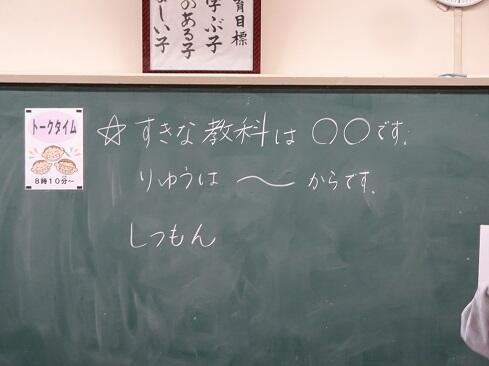 育目標
学ぶ子
のある子
しい子
トークタイム
8時10分～
☆すきな教科は〇〇です。
りゆうは 〜 からです。
しつもん